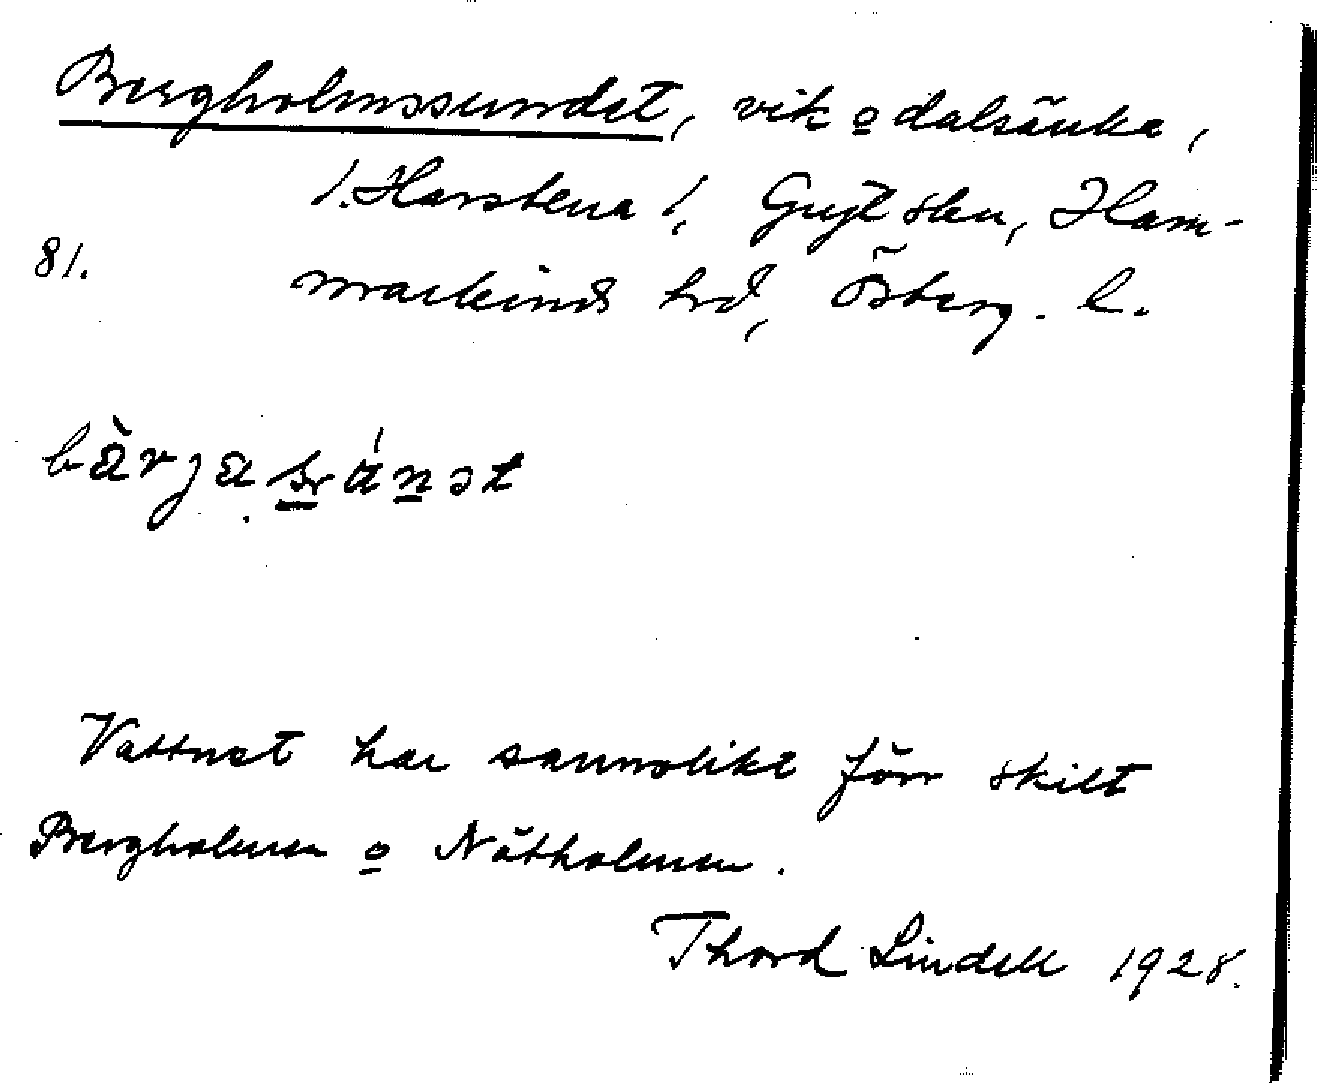 Bergholmssundet, vik o dalsänka,
/. Harstena /, Gryt skn, Ham-
81.
markinds hrd, Österg. l.
bàrjasánət
Vattnet har sannolikt förr skilt
Bergholmen o Nätholmen.
Thord Lindell 1928.